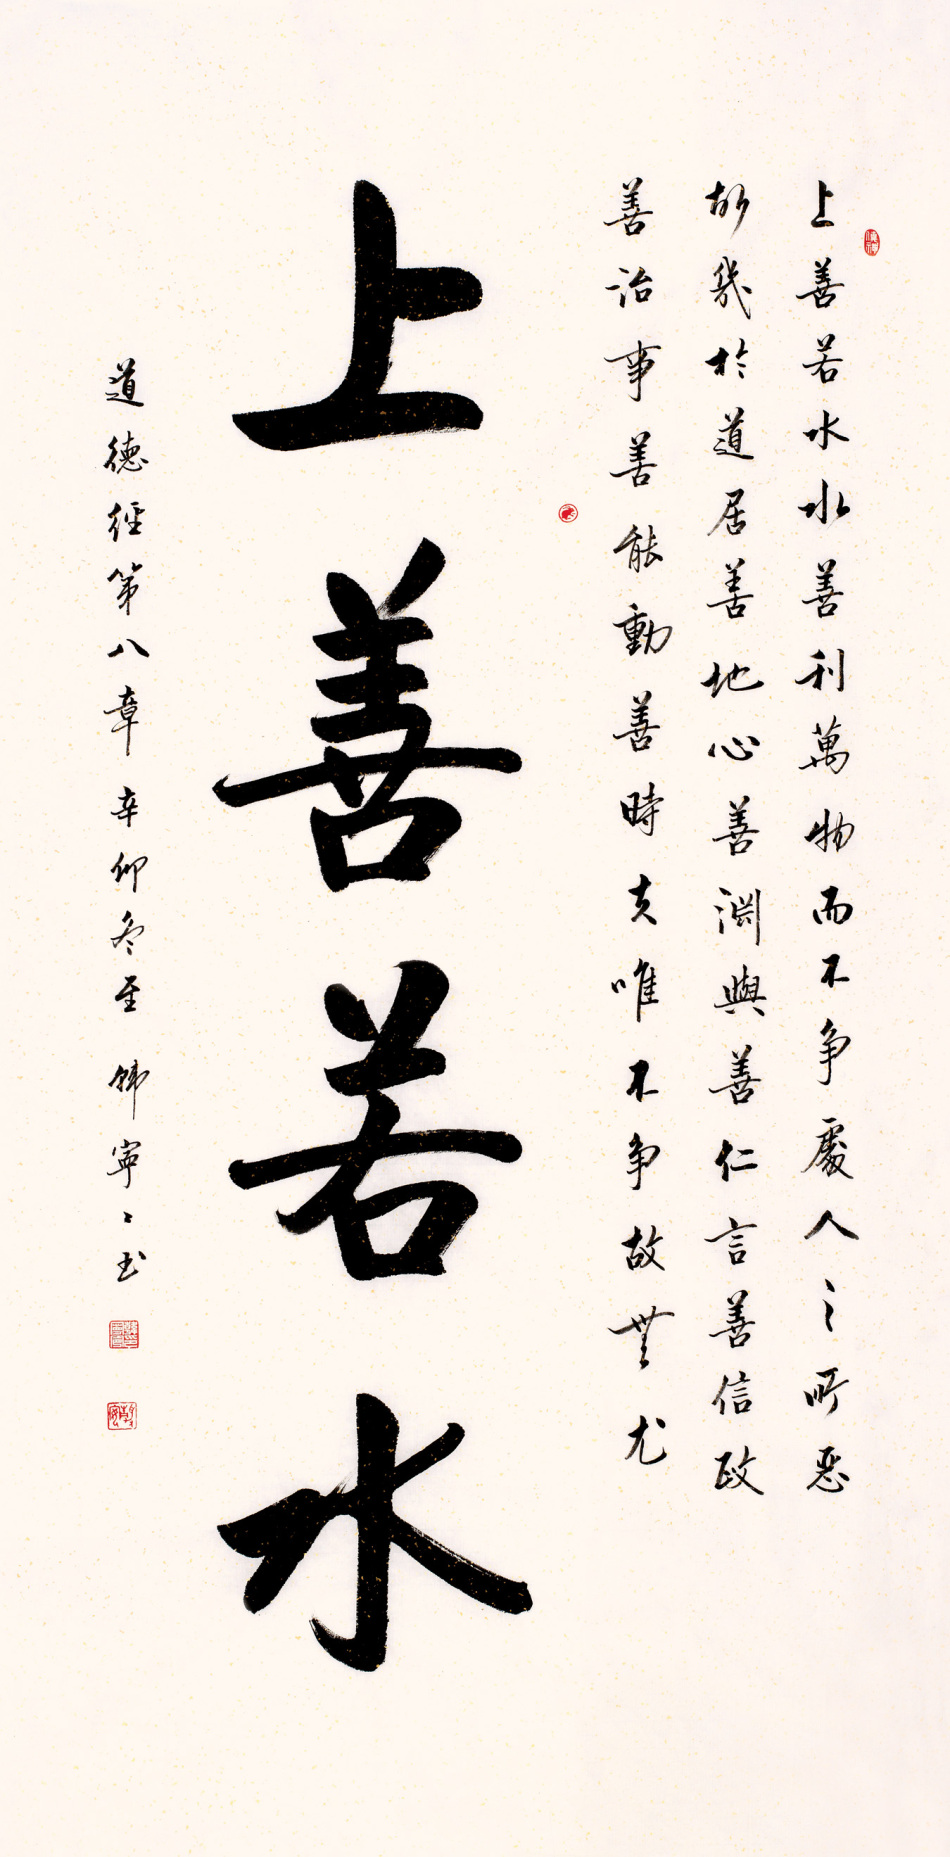 上善若水水善利萬物而不争處人之所惡
故幾於道居善地心善淵與善仁言善信政
善治事善能動善時夫唯不争故無尤
上善若水
道德經第八章辛卯冬至 韩寧寧书